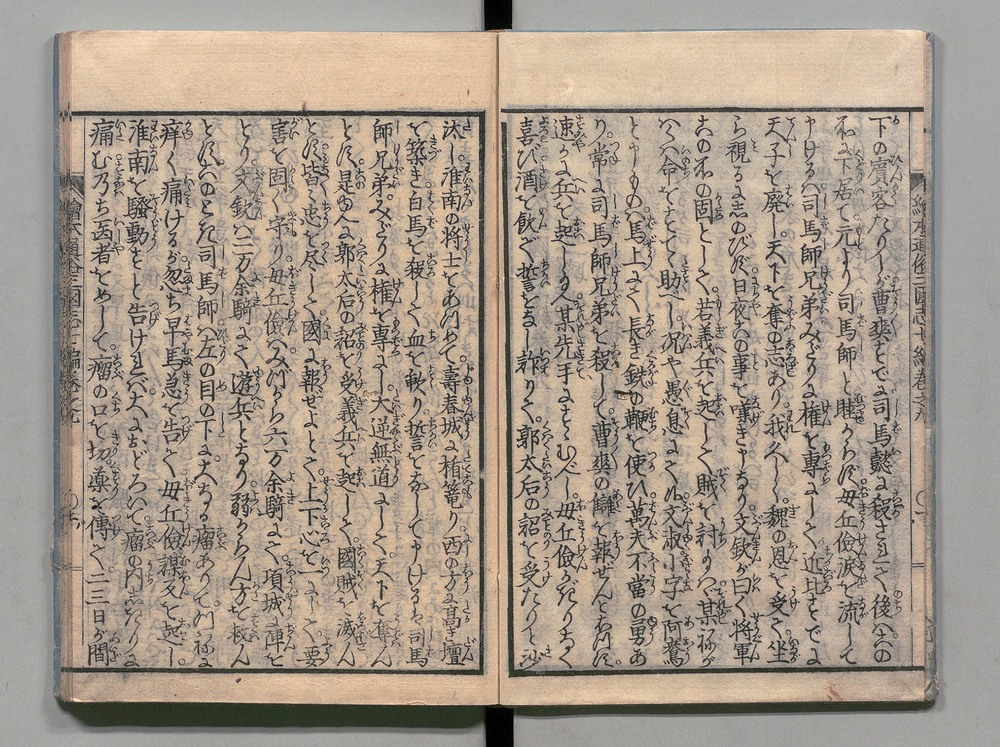 下の賓客たりしが曹爽すでに司馬懿に殺されて後へこの
不下に居て元より司馬師と睦からず毋丘儉涙を流して
申けるハ司馬師兄弟みだりに權を專にして近日すでに
天子を廢し天下を奪の志あり我久しく魏の恩を受て坐
ら視るに忍のびず日夜此の事を嘆きけり文欽が曰く將軍
この不の固として若義兵を起して賊を討たバ某ねがハ
くハ命をすてゝ助べし況や愚息に文淑小字を阿鴦
といふものハ馬上にて長き鉄の鞭を使ひ萬夫不當の勇あ
り常に司馬師兄弟を殺して曹爽の讎を報ぜんと思ふ
速かに兵を起し玉へ某先手にすゝむべし毋丘儉おほきに
喜び酒を飲で誓をなし詐りて郭太后の詔を受たりと沙
汰し淮南の将士をあつめて壽春城に楯篭り西の方に髙き壇
を築き白馬を殺して血を歃り誓をなして申けるハ司馬
師兄弟みだりに權を專にし大逆無道にして天下を奪ん
とす是ゆへに郭太后の詔を受義兵を起して國賊を滅さん
とす皆く忠を尽して國に報ぜよとて上下心を一にして要
害を固く守り毋丘儉ハみづから六万余騎にて項城に陣を
とり文欽ハ二万余騎にて遊兵となり弱からん方を救ん
とすこのとき司馬師ハ左の目の下に大なる瘤ありてつねに
痒く痛けるが忽ち早馬急を告て毋丘儉謀叛を起し
淮南を騷動すと告けれバ大におどろいて瘤の内しきりに
痛む乃ち医者をめして瘤の口を切薬を傳て二三日が間
繪本通俗三國志七編巻之九